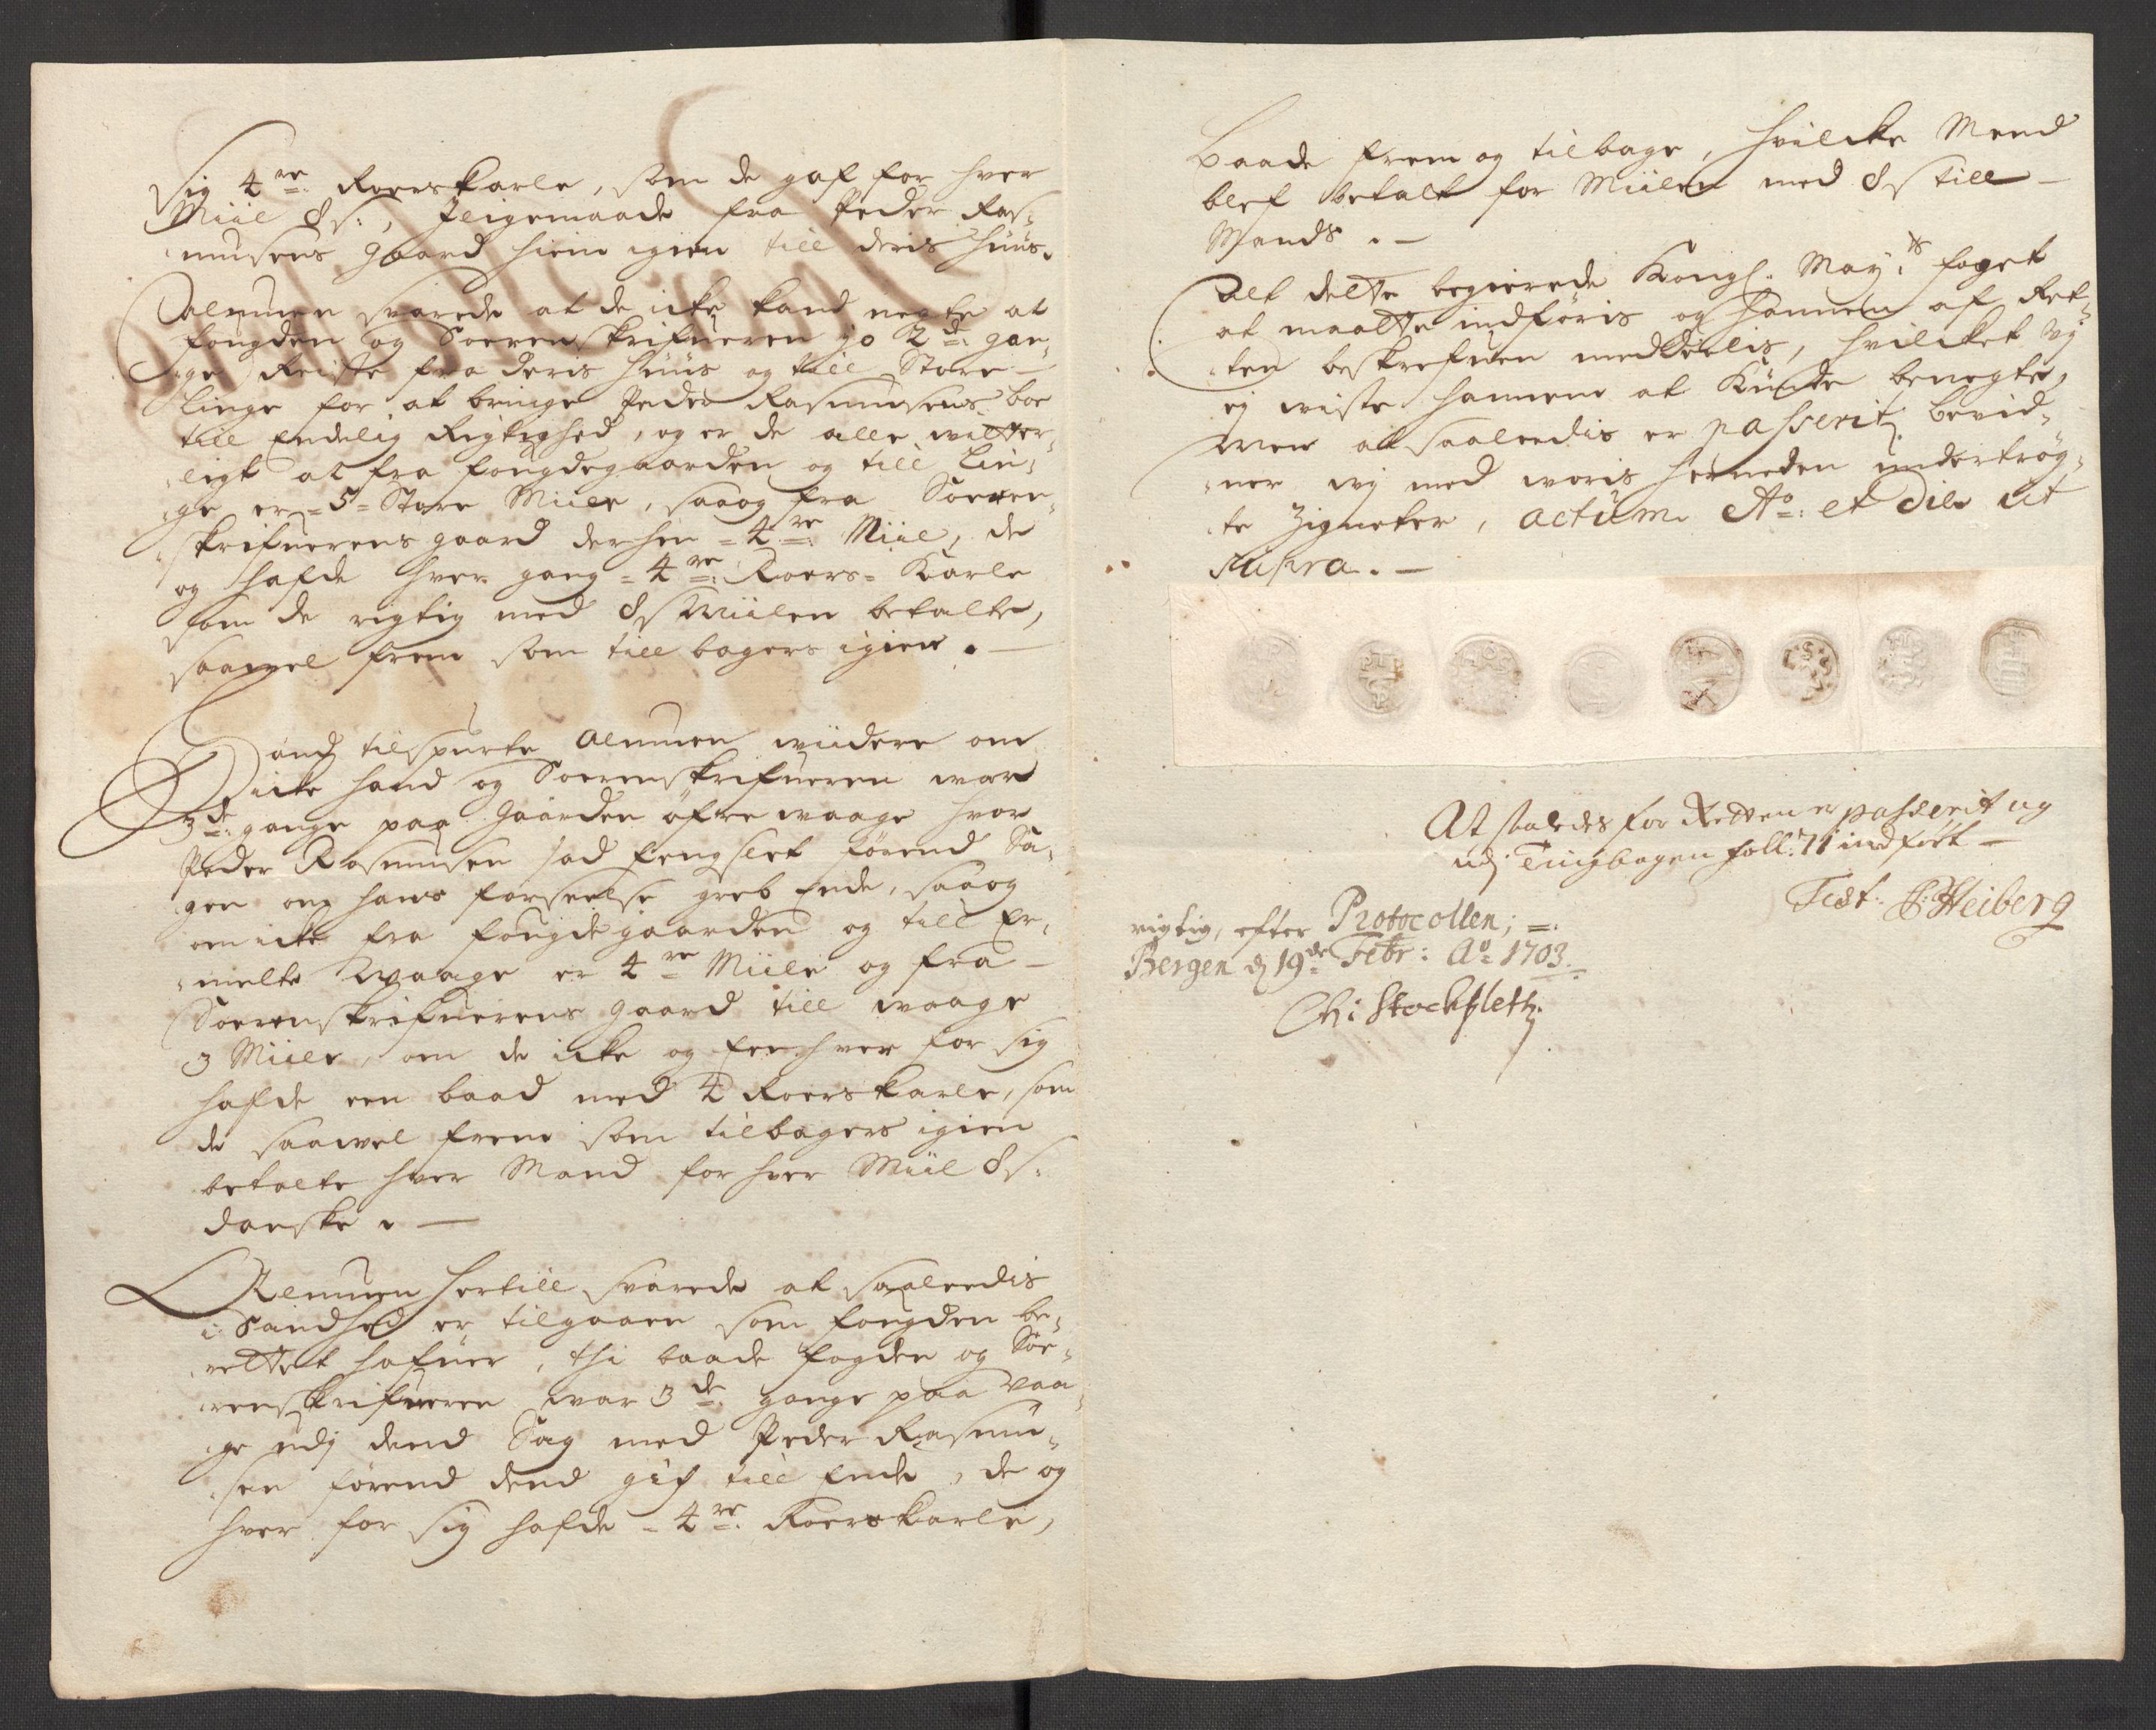 sig 4re Roerskarle, som de gaf for hver
Miil 8 s:, Jligemaade fra Peder Ras¬
musens gaard hiem igien till deris Huus.
Almuen svarede at de icke kand negte at
fougden og Sorenskrifueren jo 2de gan¬
ge Reiste fra deris Huus og till Store
Linge for at bringe Peder Rasmusens boe
till Endelig Rigtighed, og er de alle witter¬
ligt at fra fougdegaarden og till Lin¬
ge er = 5 = Store Miile, saa og fra Soeren¬
skrifuerens gaard derhen = 4re Miil, de
og hafde hver gang = 4re Roers= Karle
som de rigtig med 8 s Miilen betalte,
saavel frem som till bagers igien. —
Hand tilspurte Almuen widere om
icke hand og Sorenskrifueren war
3de gange paa Gaarden öfre waage hvor
Peder Rasmusen sad fengslet förend Sa¬
gen om hans forseelse greb Ende, saa og
om icke fra fougdegaarden og till Er¬
melte Waage er 4re Miile og fra —
Sorenskrifuerens gaard till waage
3 Miile, om de icke og Enhver for sig
hafde een baad med 4 Roerskarle, som
de saavel frem som tilbagers igien
betalte hver Mand for hver Miil 8 s:
danske. —
Almuen hertill svarede at saaleedis
i Sandhed er tilgaaen som fougden be¬
rettet hafuer, thi baade fogden og Sor¬
renskrifueren war 3de gange paa Vaa¬
ge udj dend Sag med Peder Rasmu¬
sen förend dend gik till Ende, de og
hver for sig hafde = 4re Roerskarle,
Baade frem og tilbage, hvilcke Mend
blef betalt for Miilen med 8 s till —
Mands. —
Alt dette begierede Kongl. May:ts foget
at maatte indföris og hannem af Ret¬
ten beskrefuen meddeelis, hvilcket Vj
ej wiste hannem at Kunde benegte,
men at saaleedis er passerit bevid¬
ner wj med woris herneden undertrög¬
te Zigneter, Actum Ao: et Die ut
supra. —
At saaledes for Retten er passerit og
udj Tingbogen foll: 71 indfört —
Test: P: Heiberg
rigtig, efter Protocollen; =.
Bergen d 19de Febr: Ao 1703.
Chr: Stockfleth